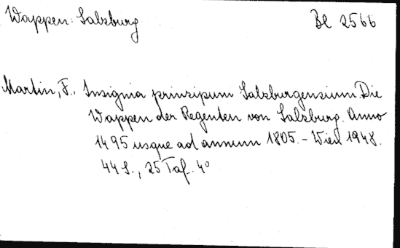 Wappen: Salzburg
Be 2566
Martin, F. Insignia prinzipum Salzburgensium Die
Wappen der Regenten von Salzburg. Anno
1495 usque ad annum 1805. - Wien 1948.
44 S., 25 Taf. 4°